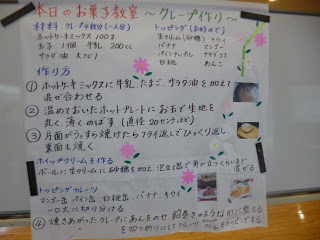 本日のお菓子教室 ～クレープ作り～
材料 クレープ4枚分(一人分)
ホットケーキミックス 100g
玉子 1個 牛乳 200cc
サラダ油 大さじ1
トッピング(お好みで)
生クリーム(砂糖) キウイ
バナナ マンゴー
パインアップル ナタデココ
白桃 あんこ
作り方
① ホットケーキミックスに牛乳、たまご、サラダ油を加えて
混ぜ合わせる
② 温めておいたホットプレートにお玉で生地を
丸く、薄くのばす (直径 20センチほど)
③ 片面がうっすら焼けたらフライ返しでひっくり返し、
裏面も焼く
ホイップクリームを作る
ボールに生クリームに砂糖を加え、泡立て器で角が立つくらいまで
混ぜる
トッピングフルーツ
マンゴー缶、パイン缶、白桃缶、バナナ、キウイ
一口大に切り分ける
④ 焼きあがったクレープにあんをのせ
を四つ折りにして